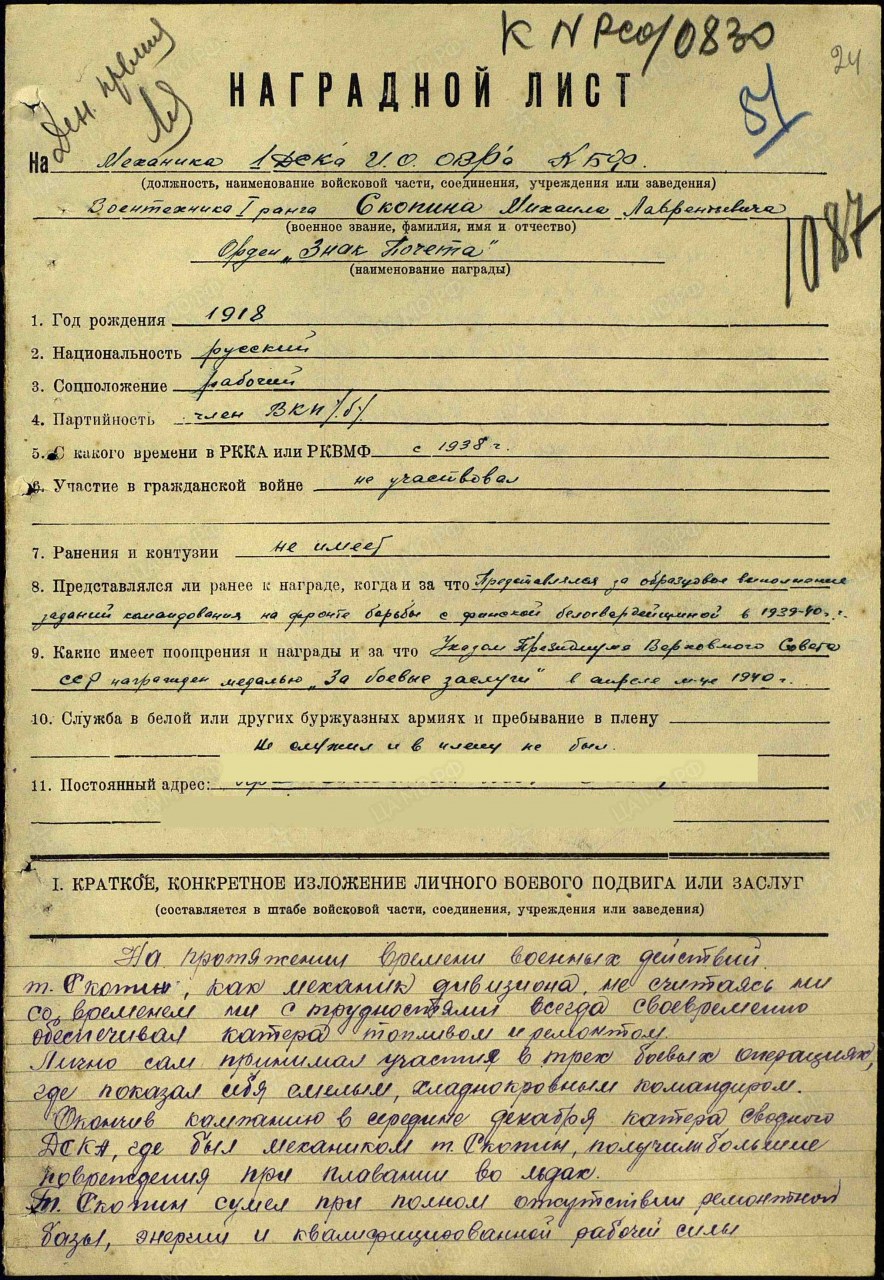 К N Рсо/0830
24
Ден. премия
51
НАГРАДНОЙ ЛИСТ
На Механика 1 ДСКа И.О. ОВРа КБФ.
(должность, наименование войсковой части, соединения, учреждения или заведения)
Воентехника I ранга Скопина Михаила Лаврентьевича
(военное звание, фамилия, имя и отчество)
1087
Орден „Знак Почета"
(наименование награды)
1. Год рождения 1918
2. Национальность русский
3. Соцположение рабочий
4. Партийность член ВКП/б/.
5. С какого времени в РККА или РКВМФ с 1938 г.
6. Участие в гражданской войне не участвовал
7. Ранения и контузии не имеет
8. Представлялся ли ранее к награде, когда и за что Представлялся за образцовое выполнение
заданий командования на фронте борьбы с финской белогвардейщиной в 1939-40 г. г.
9. Какие имеет поощрения и награды и за что Указом Президиума Верховного Совета
СССР награжден медалью „За боевые заслуги" в апреле м-це 1940 г.
10. Служба в белой или других буржуазных армиях и пребывание в плену
Не служил и в плену не был.
11. Постоянный адрес:
I. КРАТКОЕ, КОНКРЕТНОЕ ИЗЛОЖЕНИЕ ЛИЧНОГО БОЕВОГО ПОДВИГА ИЛИ ЗАСЛУГ
(составляется в штабе войсковой части, соединения, учреждения или заведения)
На протяжении времени военных действий
т. Скопин, как механик дивизиона, не считаясь ни
со временем ни с трудностями всегда своевременно
обеспечивал катера топливом и ремонтом.
Лично сам принимал участия в трех боевых операциях,
где показал себя смелым, хладнокровным командиром.
Окончив кампанию в середине декабря катера сводного
ДСКА, где был механиком т. Скопин, получили большие
повреждения при плавании во льдах.
т. Скопин сумел при полном отсутствии ремонтной
базы, энергии и квалифицированной рабочей силы